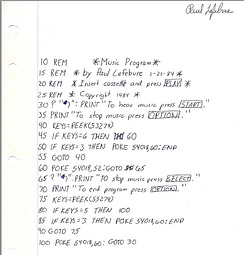 Paul Lefebvre
10 REM *Music Program*
15 REM * by Paul Lefebvre 1-21-84 *
20 REM * Insert cassette and press PLAY *
25 REM * Copyright 1984 *
30 ? "}": PRINT "To hear music press START."
35 PRINT "To stop music press OPTION."
40 KEYS=PEEK(53279)
45 IF KEYS=6 THEN 60
50 IF KEYS=3 THEN POKE 54018,60:END
55 GOTO 40
60 POKE 54018,52:GOTO 65
65 ? "}": PRINT "To stop music press SELECT."
70 PRINT "To end program press OPTION."
75 KEYS=PEEK(53279)
80 IF KEYS=5 THEN 100
85 IF KEYS=3 THEN POKE 54018,60:END
90 GOTO 75
100 POKE 54018,60: GOTO 30